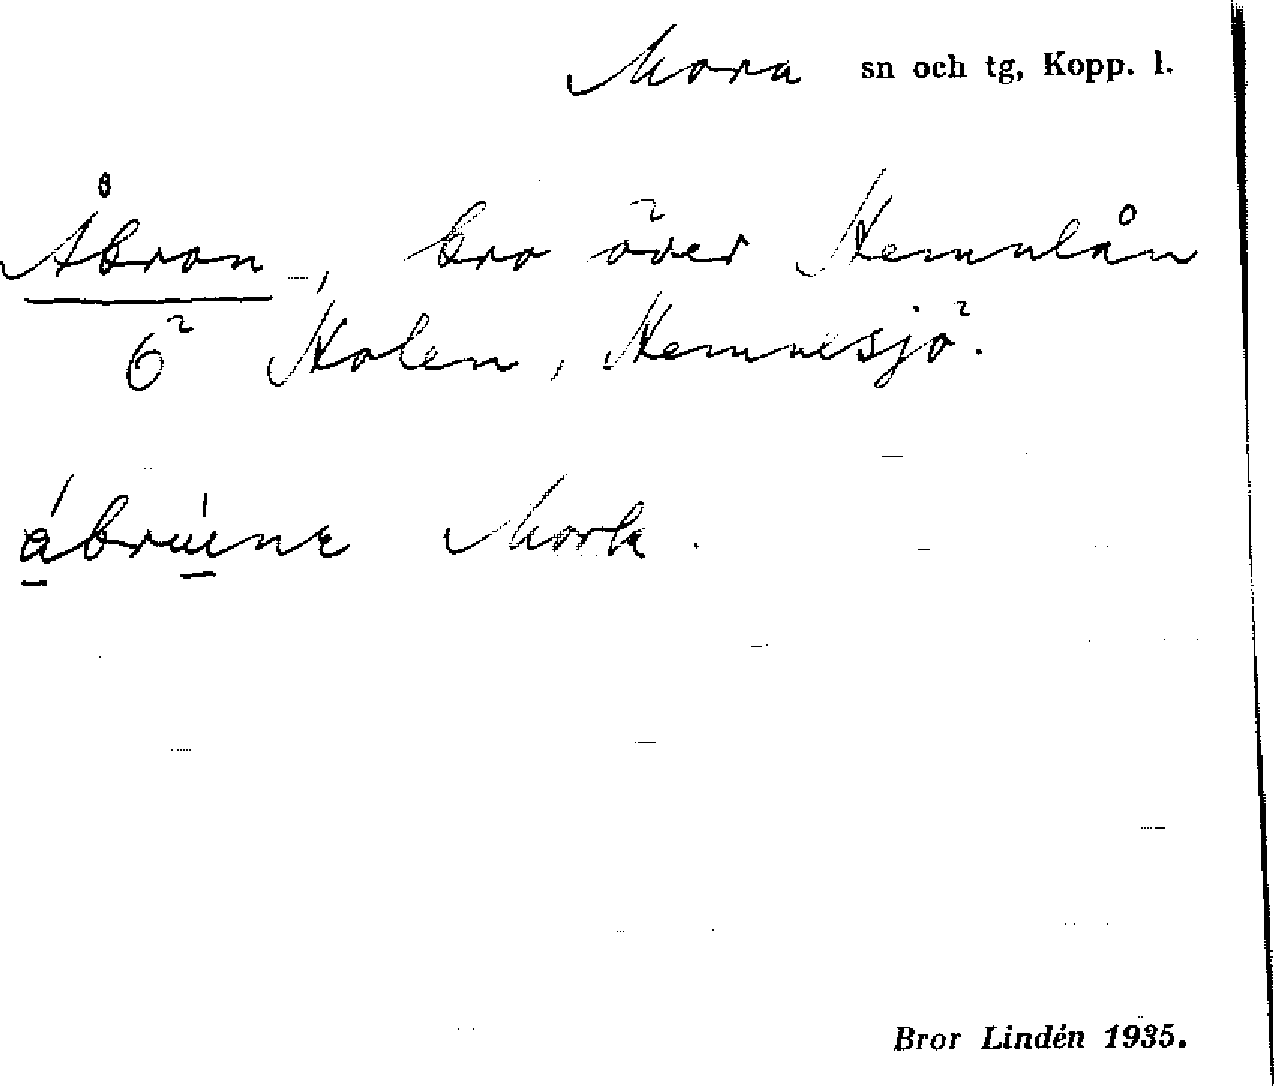 Mora sn och tg, Kopp. l.
Åbron, bro över Hemulån
ö Holen, Hemnesjö.
ábrúene Mork.
Bror Lindén 1935.